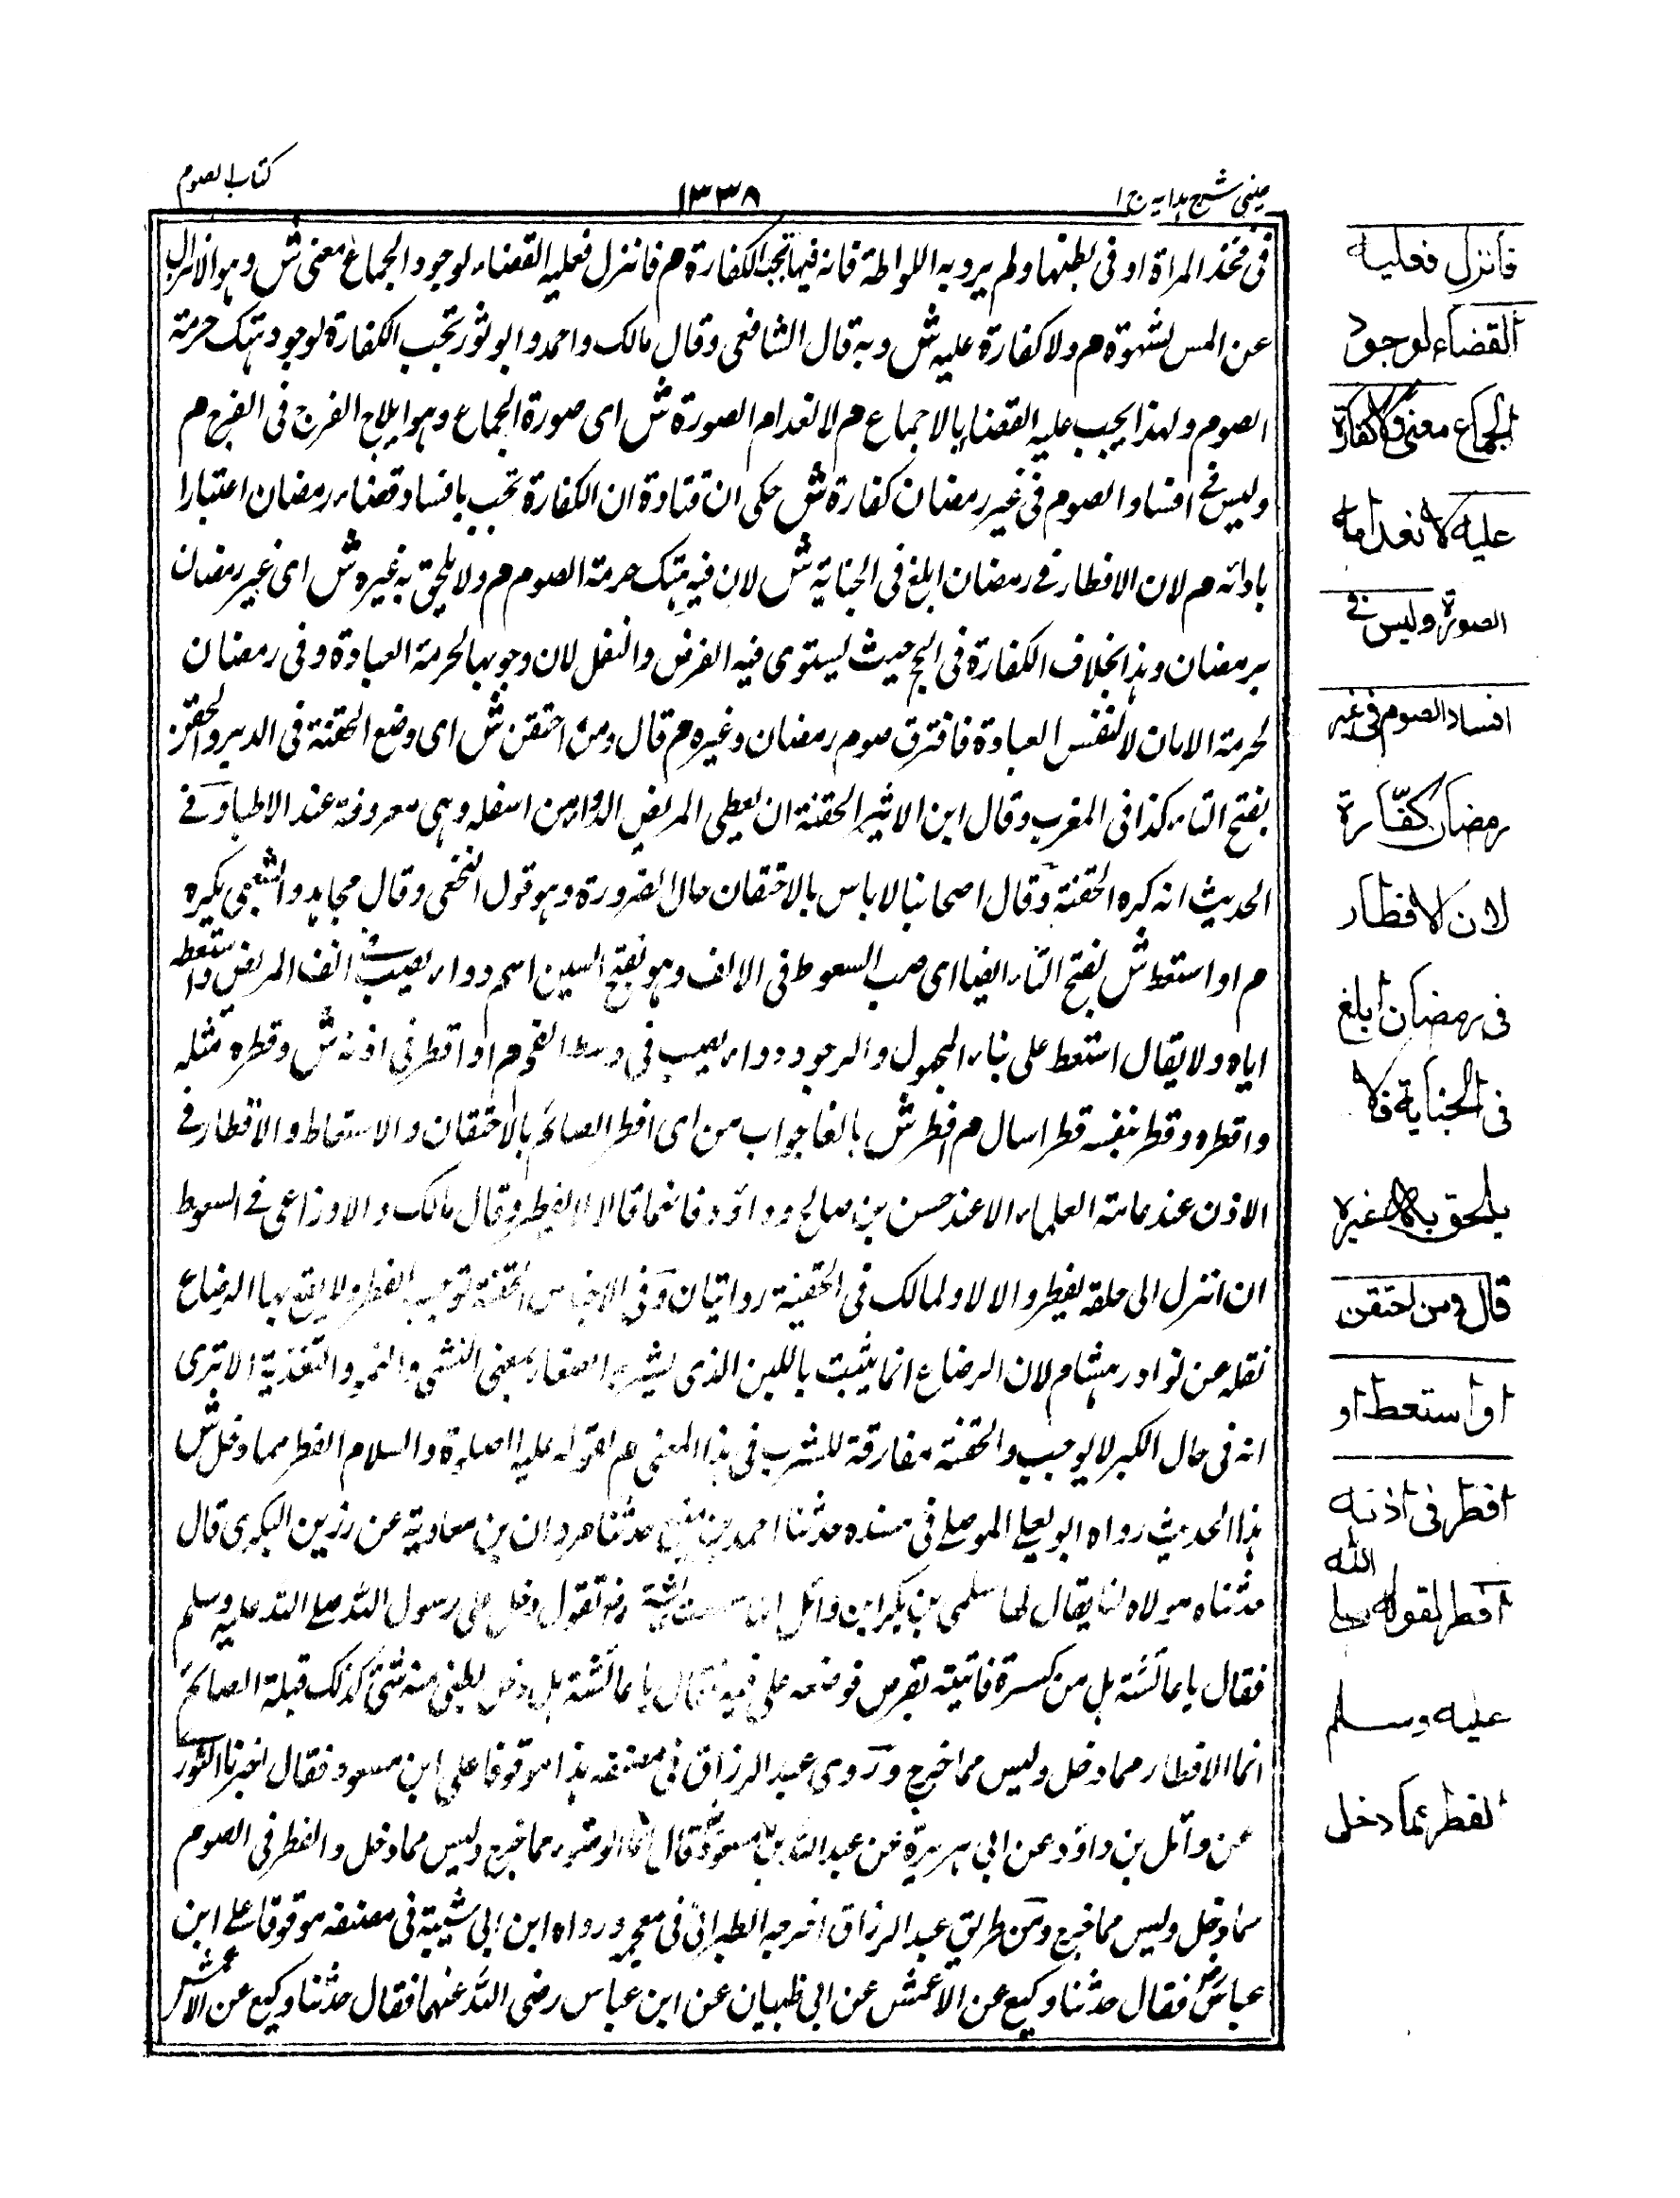 عينى شرح هدايه ج ا
١٣٣٨
كتاب الصوم
فى فخذ المراة او فى بطنها ولم يرو به اللواطة فانه فيها تجب الكفارة م فانزل فعليه القضاء لوجود الجماع معنى ش وهو الانزال
عن المس بشهوة م ولا كفارة عليه ش وبه قال الشافعى وقال مالك واحمد وابو ثور تجب الكفارة لوجود هتك حرمة
الصوم ولهذا يجب عليه القضاء بالاجماع م لانعدام الصورة ش اى صورة الجماع وهو ايلاج الفرج فى الفرج م
وليس فى افساد الصوم فى غير رمضان كفارة ش حكى ان قتادة ان الكفارة تجب بافساد قضاء رمضان اعتبارا
بادائه م لان الافطار فى رمضان ابلغ فى الجناية ش لان فيه هتك حرمة الصوم م ولا يلحق به غيره ش اى غير رمضان
برمضان وهذا بخلاف الكفارة فى الحج حيث يستوى فيه الفرض والنفل لان وجوبها لحرمة العبادة وفى رمضان
لحرمة الامان لا لنفس العبادة فافترق صوم رمضان وغيره م قال ومن احتقن ش اى وضع الحقنة فى الدبر واحتقن
بفتح التاء كذا فى المغرب وقال ابن الاثير الحقنة ان يعطى المريض الدواء من اسفله وهى معروفة عند الاطباء وفى
الحديث انه كره الحقنة وقال اصحابنا لا باس بالاحتقان حال الضرورة وهو قول النخعى وقال مجاهد والشعبى يكره
م او استعط ش بفتح التاء ايضا اى صب السعوط فى الالف وهو بفتح السين اسم دواء يصب فى انف المريض واستعطه
اياه ولا يقال استعط على بناء المجهول والوجود دواء يصب فى وسط الفم م او اقطر فى اذنه ش وقطره مثله
واقطره وقطر بنفسه قطر اسال م افطر ش بالفاء جواب من اى افطر الصائم بالاحتقان والاستعاط والاقطار فى
الاذن عند عامة العلماء الا عند حسن بن صالح وداؤد فانهما قالا لا يفطر وقال مالك والاوزاعى فى السعوط
ان انزل الى حلقه يفطر والا لا ولمالك فى الحقنة روايتان وفى الاجناس الحقنة توجب الفطر ولا يقع بها الرضاع
نقله عن نوادر هشام لان الرضاع انما يثبت باللبن الذى يشربه الصغار بمعنى النشى والنمو والتغذية الا ترى
انه فى حال الكبر لا يوجب والحقنة مفارقة للشرب فى هذا المعنى م لقوله عليه الصلوة والسلام الفطر مما دخل ش
هذا الحديث رواه ابو يعلى الموصلى فى مسنده حدثنا احمد بن منيع حدثنا مروان بن معاوية عن رزين البكرى قال
حدثناه مولاه لنا يقال لها سلمى بن بكر ابن وائل انها سمعت عائشة رضـ تقول دخل على رسول الله صلى الله عليه وسلم
فقال يا عائشة هل من كسرة فاتيته بقرص فوضعه على فيه فقال يا عائشة هل دخل بطنى منه شئ كذلك قبلة الصائم
انما الافطار مما دخل وليس مما خرج وروى عبد الرزاق فى مصنفه هذا موقوفا على ابن مسعود فقال اخبرنا الثورى
عن وائل بن داؤد عن ابى هريرة عن عبد الله بن مسعود قال انما الوضوء مما خرج وليس مما دخل والفطر فى الصوم
مما دخل وليس مما خرج ومن طريق عبد الرزاق اخرجه الطبرانى فى معجمه ورواه ابن ابى شيبة فى مصنفه موقوفا على ابن
عباس رضـ فقال حدثنا وكيع عن الاعمش عن ابى ظبيان عن ابن عباس رضى الله عنهما فقال حدثنا وكيع عن الاعمش
فانزل فعليه
القضاء لوجود
الجماع معنى ولا كفارة
عليه لانعدامه
الصورة وليس فى
افساد الصوم فى غير
رمضان كفّارة
لان الافطار
فى رمضان ابلغ
فى الجناية فلا
يلحق به غيره
قال ومن احتقن
او استعط او
اقطر فى اذنه
افطر لقوله صلى الله
عليه وسلم
الفطر مما دخل